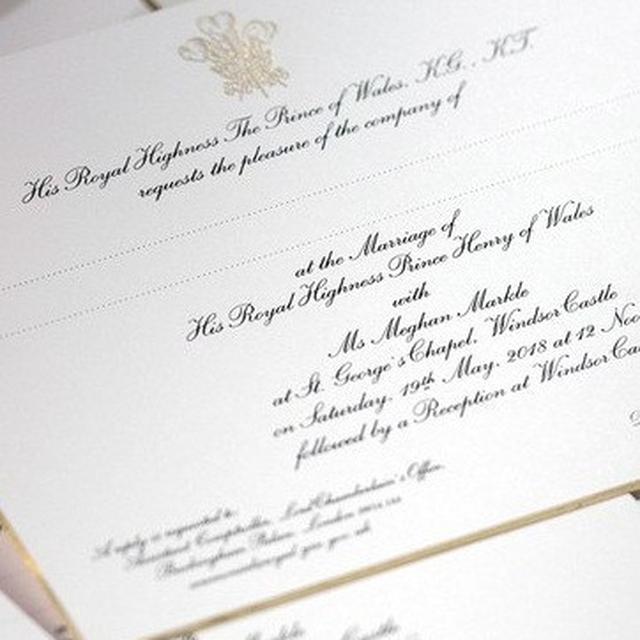 His Royal Highness The Prince of Wales, K.G., K.T.
requests the pleasure of the company of
at the Marriage of
His Royal Highness Prince Henry of Wales
with
Ms Meghan Markle
at St. George's Chapel, Windsor Castle
on Saturday, 19th May, 2018 at 12 Noo
followed by a Reception at Windsor Cas
A reply is requested to:
Assistant Comptroller, Lord Chamberlain's Office,
Buckingham Palace, London
Markle
Castle